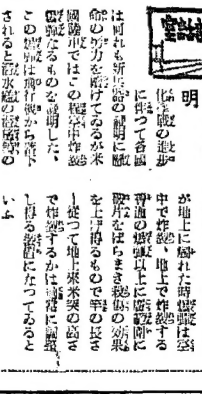 明
化學戰の進歩
に伴つて各國
は何れも新兵器の發明に懸
命の努力を續けてゐるが米
國陸軍ではこの程空中炸裂
彈なるものを發明した、
この爆彈は飛行機から落下
されると
が地上に觸れた時爆彈は空
中で炸裂、地上で炸裂する
普通の爆彈以上に廣範圍に
破片をばらまき殺傷の效果
を上げ得るもので竿の長さ
に從つて地上米突の高さ
で炸裂するかは調整
し得る裝置になつてゐると
いふ